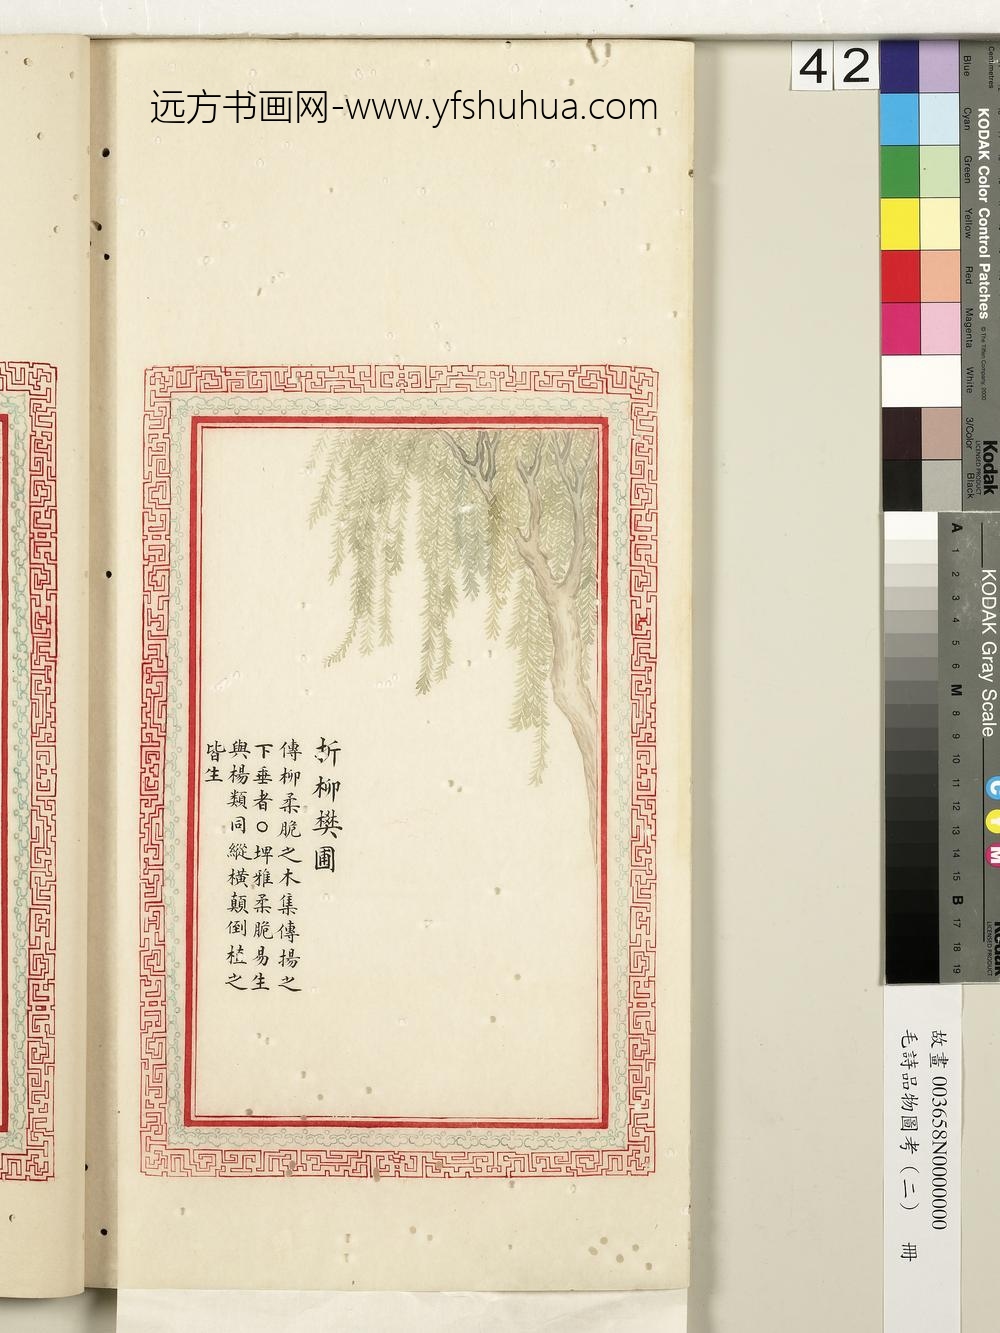 远方书画网-www.yfshuhua.com
42
折柳樊圃
傳柳柔脆之木集傳揚之
下垂者○埤雅柔脆易生
與楊類同縱橫顛倒植之
皆生
KODAK Color Control Patches
© The Tiffen Company, 2000
Kodak
LICENSED PRODUCT
Centimetres
Blue
Cyan
Green
Yellow
Red
Magenta
White
3/Color
Black
KODAK Gray Scale
C
Y
M
Kodak
LICENSED PRODUCT
A 1 2 3 4 5 6 M 8 9 10 11 12 13 14 15 B 17 18 19
故畫 003658N0000000
毛詩品物圖考（二） 冊